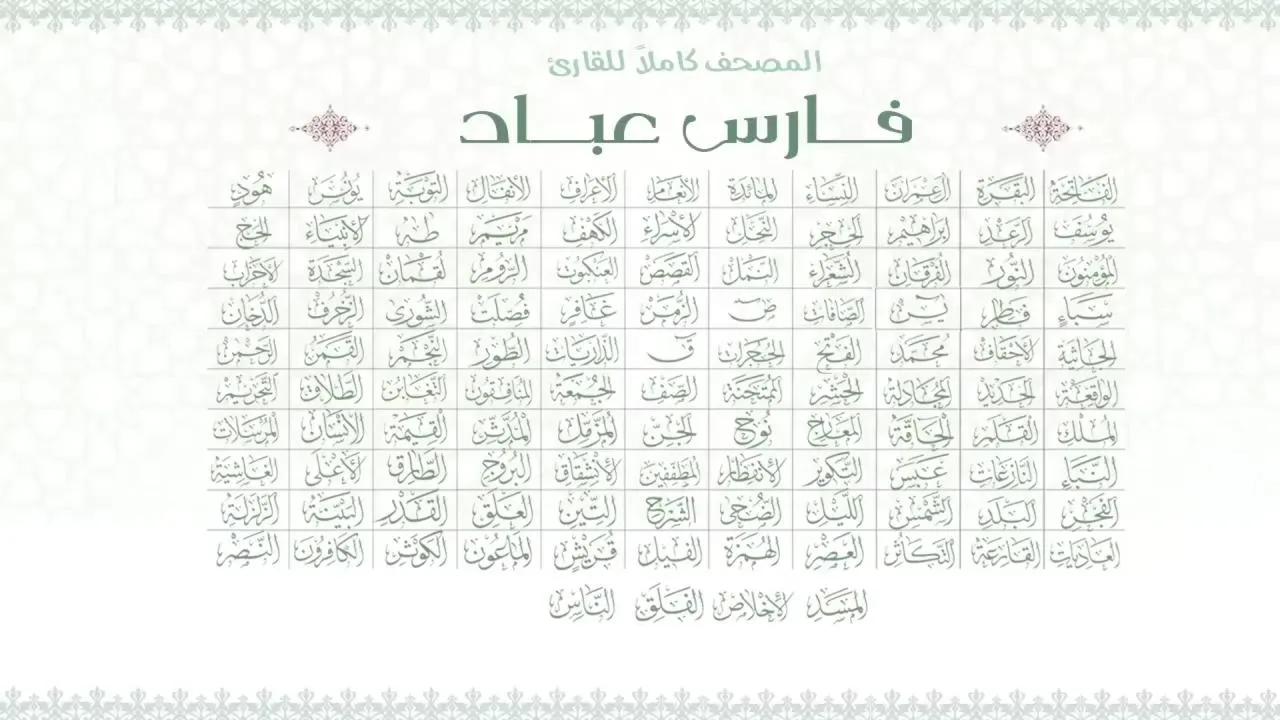 المصحف كاملاً للقارئ
فارس عباد
الفاتحة البقرة آل عمران النساء المائدة الأنعام الأعراف الأنفال التوبة يونس هود
يوسف الرعد إبراهيم الحجر النحل الإسراء الكهف مريم طه الأنبياء الحج
المؤمنون النور الفرقان الشعراء النمل القصص العنكبوت الروم لقمان السجدة الأحزاب
سبإ فاطر يس الصافات ص الزمر غافر فصلت الشورى الزخرف الدخان
الجاثية الأحقاف محمد الفتح الحجرات ق الذاريات الطور النجم القمر الرحمن
الواقعة الحديد المجادلة الحشر الممتحنة الصف الجمعة المنافقون التغابن الطلاق التحريم
الملك القلم الحاقة المعارج نوح الجن المزمل المدثر القيامة الإنسان المرسلات
النبإ النازعات عبس التكوير الانفطار المطففين الانشقاق البروج الطارق الأعلى الغاشية
الفجر البلد الشمس الليل الضحى الشرح التين العلق القدر البينة الزلزلة
العاديات القارعة التكاثر العصر الهمزة الفيل قريش الماعون الكوثر الكافرون النصر
المسد الإخلاص الفلق الناس